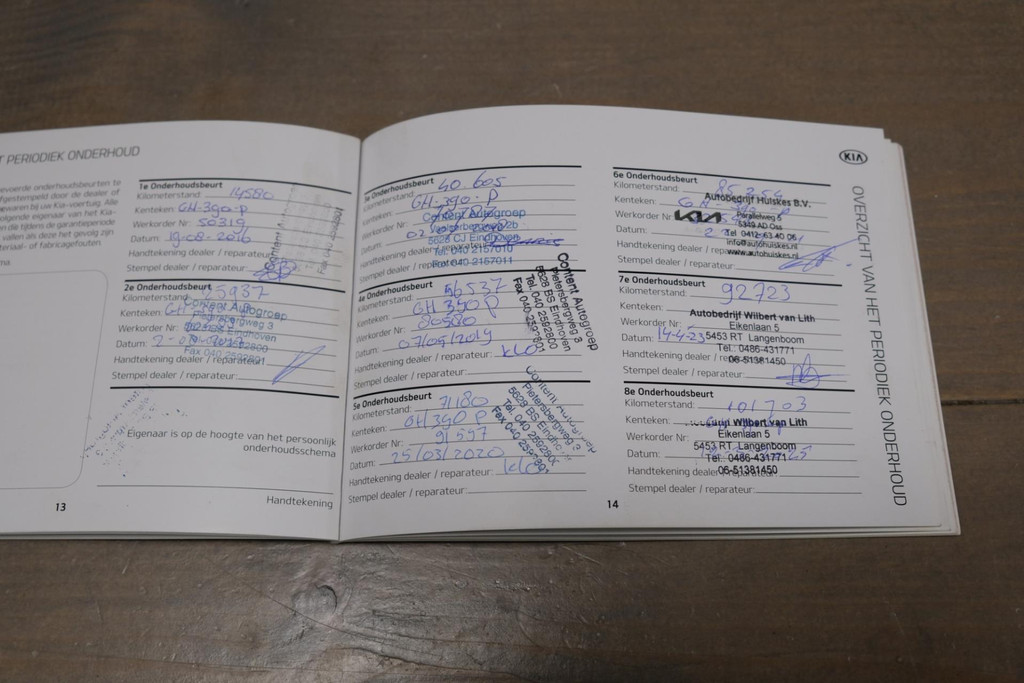 T PERIODIEK ONDERHOUD
evoerde onderhoudsbeurten te
fgestempeld door de dealer of
ewaren bij uw Kia-voertuig. Alle
olgende eigenaar van het Kia-
en die tijdens de garantieperiode
vallen als deze het gevolg zijn
teriaal- of fabricagefouten
ma
1e Onderhoudsbeurt
Kilometerstand: 14580
Kenteken: GH-390-P
Werkorder Nr: 50319
Datum: 19-08-2016
Handtekening dealer / reparateur:
Stempel dealer / reparateur:
2e Onderhoudsbeurt
Kilometerstand:
Kenteken:
Werkorder Nr:
Datum:
Content Autogroep
Pietersbergweg 3
Eindhoven
Fax 040 2592801
Handtekening dealer / reparateur:
Stempel dealer / reparateur:
Eigenaar is op de hoogte van het persoonlijk
onderhoudsschema
Handtekening
13
3e Onderhoudsbeurt
Kilometerstand: 40.605
Kenteken: GH-390-P
Werkorder Nr:
Datum:
Content Autogroep
5628 CJ Eindhoven
Tel. 040 2157010
Fax 040 2157011
Handtekening dealer / reparateur:
Stempel dealer / reparateur:
4e Onderhoudsbeurt
Kilometerstand: 56537
Kenteken: GH 390 P
Werkorder Nr: 86580
Datum: 07/05/2019
Handtekening dealer / reparateur:
Stempel dealer / reparateur:
Content Autogroep
Pietersbergweg 3
5628 BS Eindhoven
Tel. 040 2592800
Fax 040 2592801
5e Onderhoudsbeurt
Kilometerstand: 71180
Kenteken: GH 390 P
Werkorder Nr: 91597
Datum: 25/03/2020
Handtekening dealer / reparateur:
Stempel dealer / reparateur:
Content Autogroep
Pietersbergweg 3
5628 BS Eindhoven
Tel. 040 2592800
Fax 040 2592801
6e Onderhoudsbeurt
Kilometerstand: 85.254
Kenteken:
Werkorder Nr:
Datum:
Autobedrijf Huiskes B.V.
KIA
Parallelweg 5
5349 AD Oss
Tel 0412-63 40 06
info@autohuiskes.nl
www.autohuiskes.nl
Handtekening dealer / reparateur:
Stempel dealer / reparateur:
7e Onderhoudsbeurt
Kilometerstand: 92723
Kenteken:
Werkorder Nr:
Datum: 14-4-23
Autobedrijf Wilbert van Lith
Eikenlaan 5
5453 RT Langenboom
Tel.: 0486-431771
06-51381450
Handtekening dealer / reparateur:
Stempel dealer / reparateur:
8e Onderhoudsbeurt
Kilometerstand: 101703
Kenteken:
Werkorder Nr:
Datum:
Wilbert van Lith
Eikenlaan 5
5453 RT Langenboom
Tel.: 0486-431771
06-51381450
Handtekening dealer / reparateur:
Stempel dealer / reparateur:
14
KIA
OVERZICHT VAN HET PERIODIEK ONDERHOUD